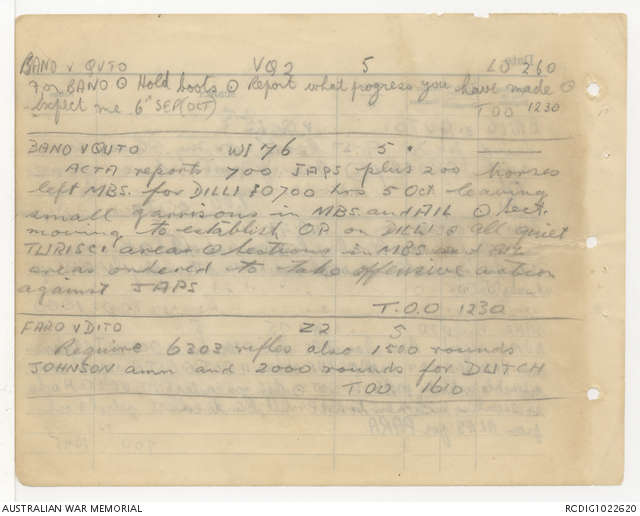 BAND V QUTO VQ2 5 LO 260
For BAND ⊙ Hold boots ⊙ Report what progress you have made ⊙
expect me 6" SEP (OCT) T.O.O 1230
BAND V QUTO WS 76 5
ACTA reports 700 JAPS plus 200 horses
left MBS. for DILLI 0700 hrs 5 Oct leaving
small garrisons in MBS. and AIL ⊙ Sect.
moving to establish OP on DILLI ⊙ all quiet
TURISCI area ⊙ Sections in MBS and AIL
areas ordered to take offensive action
against JAPS
T.O.O 1230
FARO V DITO Z2 5
Require 6 303 rifles also 1500 rounds
JOHNSON amn and 2000 rounds for DUTCH
T.O.O. 1610
AUSTRALIAN WAR MEMORIAL RCDIG1022620